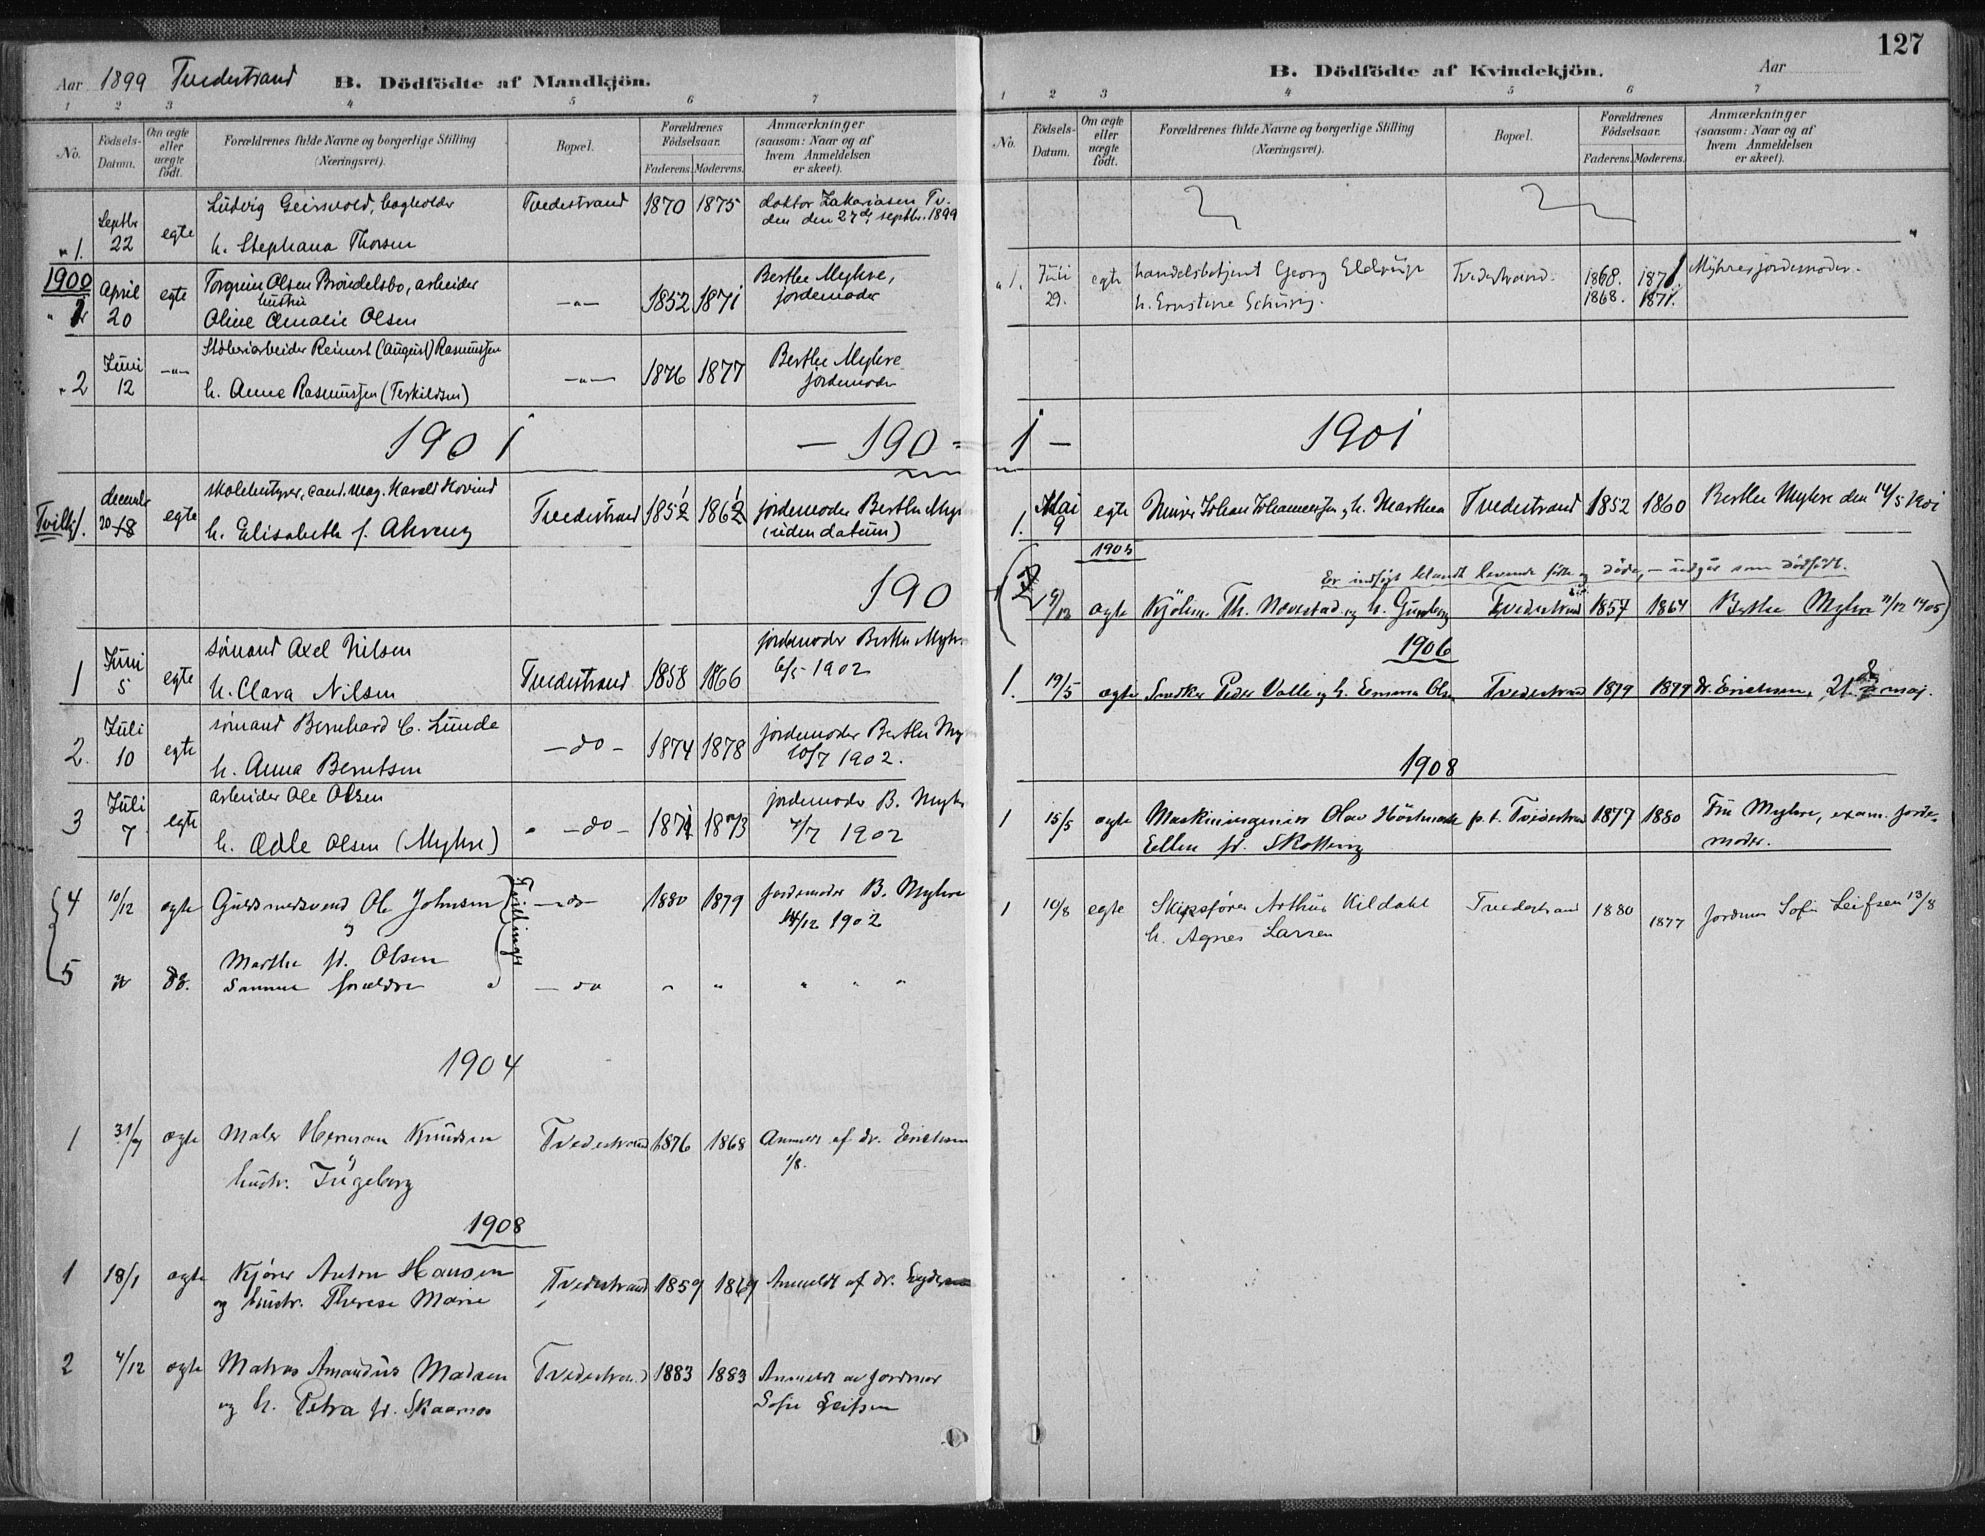 127
Aar 1899 Tvedestrand B. Dödfödte af Mandkjön.
1 2 3 4 5 6 7
No. Födsels-Datum. Om ægte eller uægte födt. Forældrenes fulde Navne og borgerlige Stilling (Næringsvei). Bopæl. Forældrenes Födselsaar. Faderens. Moderens. Anmærkninger (saasom: Naar og af hvem Anmeldelsen er skeet).
Septbr Ludvig Geirsvold, bogholder Tvedestrand 1870 1875 doktor Zakariasen Tv.
den 27de septbr. 1899
"1. 22 egte h. Stephana Thorsen
1900
April egte Torgrim Olsen Bröndelsbo, arbeider -"- 1852 1871 Berthe Myhre,
hustru jordemoder
" 1 20 Oline Amalie Olsen
Juni -"- Stöberiarbeider Reinert (August) Rasmussen -"- 1876 1877 Berthe Myhre
"2 12 h. Anne Rasmussen (Terkildsen) jordemoder
1901 — 190
decembr skolebestyrer, cand. mag. Harald Hovind
Tvill. 1. 20 18 egte h. Elisabeth f. Tvedestrand 1852 1862 jordemoder Berthe Myhr
(uden datum)
190
Juni sömand Axel Nilsen jordemoder Berthe Myhr
1 5 egte h. Clara Nilsen Tvedestrand 1858 1866 6/5 1902
Juli sömand Bernhard C. Lunde jordemoder Berthe My
2. 10 egte h. Anna Berntsen - do - 1874 1878 10/7 1902.
Juli arbeider Ole Olsen jordemoder B. Myhr
3 7 egte h. Adle Olsen (Myhre) " - do - 1871 1873 7/7 1902
4 10/12 ægte Guldsmedsvend Ole Johnsen Tvillinger - do - 1880 1879 Jordemoder B. Myhre
og 15/12 1902
Marthe fd. Olsen
5 " do. Samme forældre - do " " " " "
1904
1 31/7 ægte Maler Herman Knudsen Tvedestrand 1876 1868 Anmeldt af dr. Erichsen
1/8.
hustr. Ingeborg
1908
1 18/1 ægte Kjører Anton Hansen Tvedestrand 1859 1869 Anmeldt af dr.
og hustr. Therese Marie
2 4/12 ægte Matros Amandus Madsen Tvedestrand 1883 1883 Anmeldt av jordmor
og h. Petra fd. Skaarnes Sofie Leifsen
B. Dödfödte af Kvindekjön. Aar
1 2 3 4 5 6 7
No. Födsels-Datum. Om ægte eller uægte födt. Forældrenes fulde Navne og borgerlige Stilling (Næringsvei). Bopæl. Forældrenes Födselsaar. Faderens. Moderens. Anmærkninger (saasom: Naar og af hvem Anmeldelsen er skeet).
"
"1. Juli egte handelsbetjent Georg Eldrup Tvedestrand. 1868. 1871 Myhre jordemoder.
29. h. Ernstine Schürig. 1868. 1871.
1 — 1901
1. Mai 9 egte Murer Johan Johannessen og h. Marthea Tvedestrand 1852 1860 Berthe Myhre den 14/5 1901
1905
Er indført blandt levende fødte og døde, - udgår som dødfødt.
2 9/12 ægte Th. Nævestad og h. Gunborg Tvedestrand 1857 1864 Berthe Myhre 11/12 1905
1906
1. 19/5 ægte Snedker Peder Valle og h. Emma Olsen Tvedestrand 1879 1879 dr. Erichsen, 21de maj.
1908
1 15/5 ægte Maskiningeniør Olav Hörlmark p.t. Tvedestrand 1877 1880 Fru Myhre, exam. jorde-
Ellen fd. Skotting moder.
1 10/8 egte Skipsfører Arthur Kildahl Tvedestrand 1880 1877 Jordmor Sofie Leifsen 13/8
h. Agnes Larsen